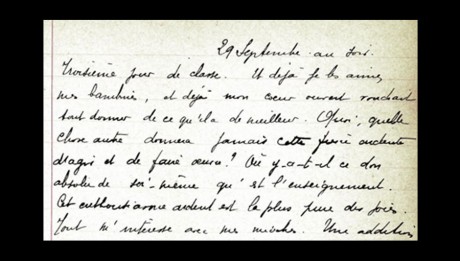 29 Septembre au soir.
Troisième jour de classe. Et déjà je les aime,
mes bambins, et déjà mon cœur ouvert voudrait
tout donner de ce qu'il a de meilleur. Quoi, quelle
chose autre donnera jamais cette ardente
d'agir et de faire œuvre? Où y a-t-il ce don
absolu de soi-même qu'est l'enseignement.
Cet enthousiasme ardent est la plus pure des joies.
Tout m'intéresse avec mes mioches. Une addition